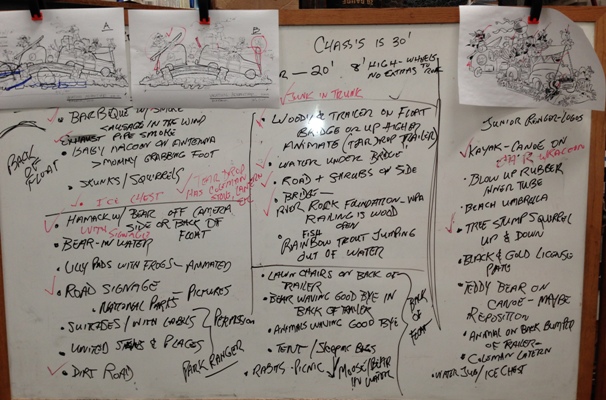 A
B
CHASS'S IS 30'
20' 8' HIGH-WHEELS
NO EXTRAS TO
JUNK IN TRUNK
BACK
OF
FLOAT
• BARBEQUE W/ SMOKE
SAUSAGE IN THE WIND
PIPE SMOKE
• BABY RACOON ON ANTENNA
> MOMMY GRABBING FOOT
• SKUNKS/SQUIRRELS
• ICE CHEST
TEAR DROP
HAS COLEMAN
STOVE, LANTERN
• HAMACK W/ BEAR OFF CAMERA
WITH SIGNAGE? SIDE OR BACK OF
FLOAT
• BEAR-IN WATER
• LILLY PADS WITH FROGS - ANIMATED
• ROAD SIGNAGE
• NATIONAL PARKS - PICTURES
• SUITCASES/WITH LABELS
UNITED STATES & PLACES
PERMISSION
PARK RANGER
• DIRT ROAD
• WOODY & TRAILER ON FLOAT
BRIDGE OR UP HIGH
ANIMATE (TEAR DROP TRAILER)
• WATER UNDER BRIDGE
• ROAD + SHRUBS ON SIDE
• BRIDGE -
RIVER ROCK FOUNDATION - WPA
RAILING IS WOOD
OPEN
• FISH
RAINBOW TROUT JUMPING
OUT OF WATER
• LAWN CHAIRS ON BACK OF
TRAILER
• BEAR WAVING GOOD BYE IN
BACK OF TRAILER
• ANIMALS WAVING GOOD BYE
• TENT / SLEEPING BAGS
• RABITS - PICNIC
MOOSE/BEAR
IN WATER
BACK OF
FLOAT
JUNIOR RANGER-LOGOS
• KAYAK - CANOE ON
• BLOW UP RUBBER
INNER TUBE
• BEACH UMBRELLA
• TREE STUMP SQUIRREL
UP & DOWN
• BLACK & GOLD LICENSE
PLATES
• TEDDY BEAR ON
CANOE - MAYBE
REPOSITION
• ANIMAL ON BACK BUMPER
OF TRAILER -
• COLEMAN LATERN
• WATER JUG/ICE CHEST